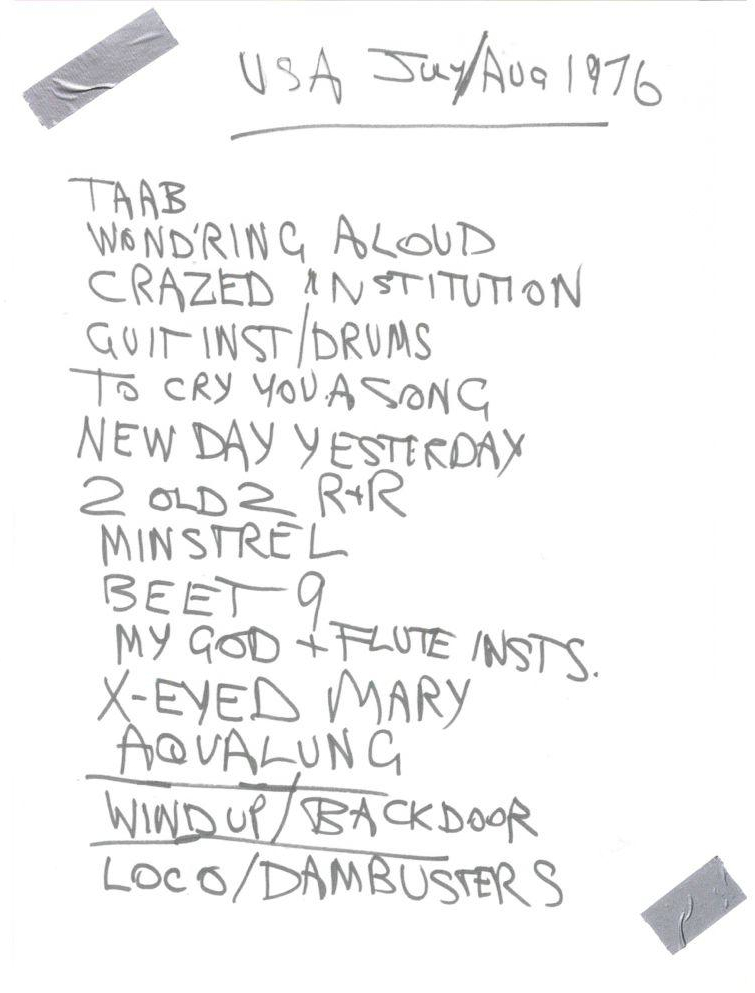 USA July/Aug 1976
TAAB
WOND'RING ALOUD
CRAZED INSTITUTION
GUIT INST/DRUMS
TO CRY YOU A SONG
NEW DAY YESTERDAY
2 OLD 2 R+R
MINSTREL
BEET 9
MY GOD + FLUTE INSTS.
X-EYED MARY
AQUALUNG
WIND UP/BACKDOOR
LOCO/DAMBUSTERS